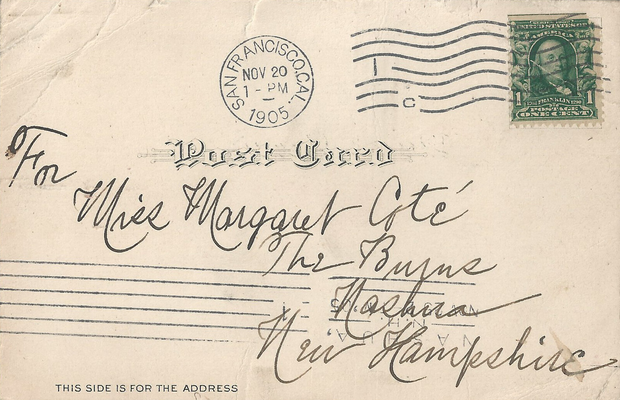 SAN FRANCISCO, CAL.
NOV 20
1 - PM
1905
C
UNITED STATES OF AMERICA
1 FRANKLIN 1
POSTAGE
ONE CENT
Post Card
For
Miss Margaret Coté
The Burns
Nashua
New Hampshire
NASHUA
N.H.
THIS SIDE IS FOR THE ADDRESS